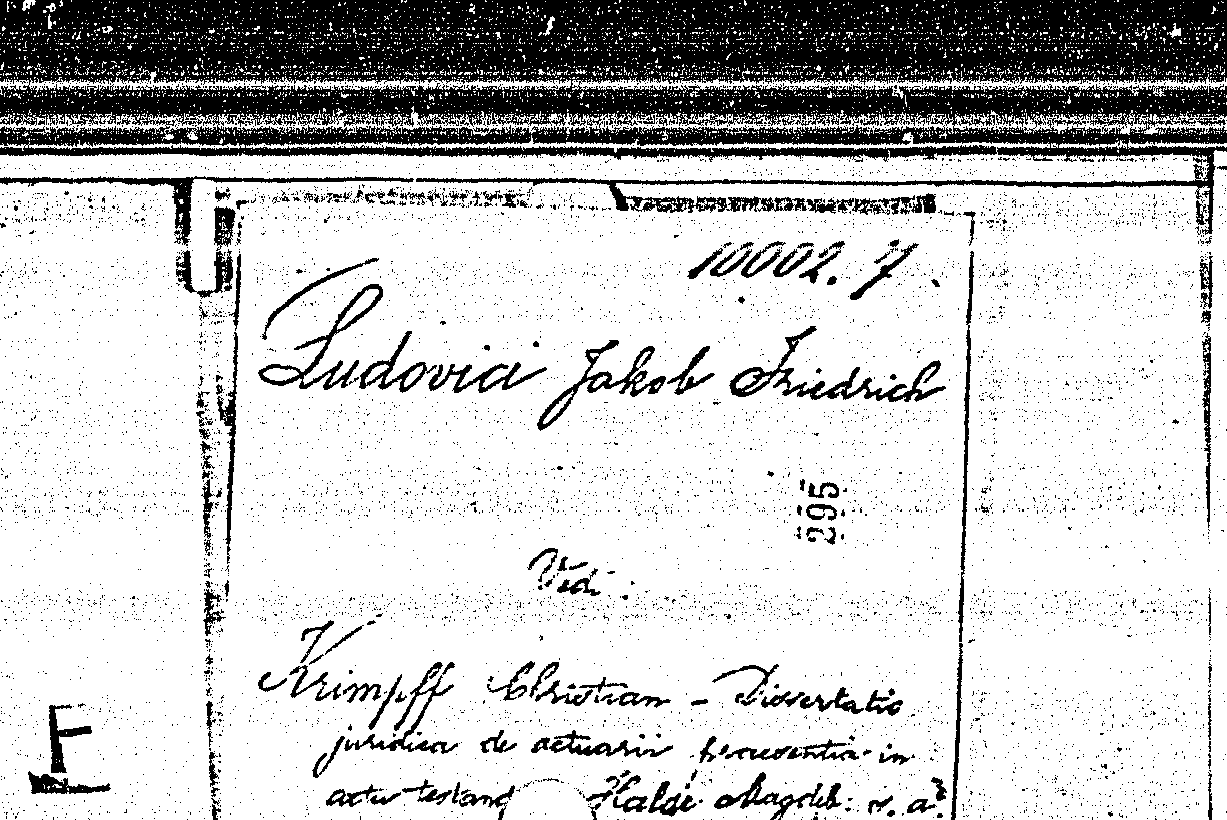 10002. 7.
Ludovici Jakob Friedrich
295
Vedi:
Krimpff Christian - Dissertatio
juridica de actuarii praesentia in
actu testand Halae Magdeb: s. a.
F